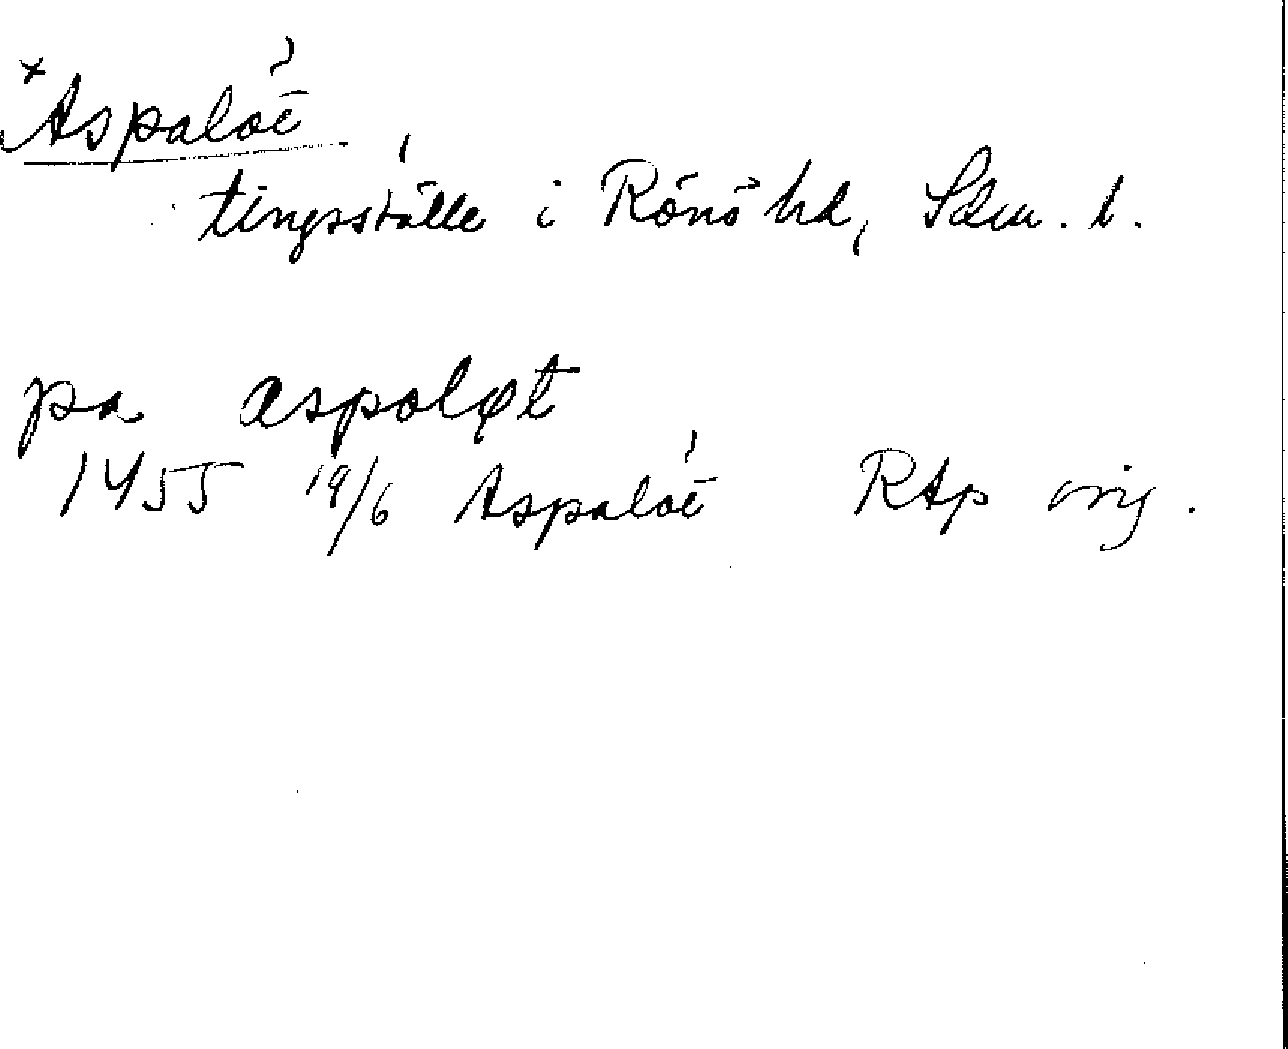 *Aspaløt,
tingsställe i Rönö hd, Sdm. l.
pa aspoløt
1455 19/6 Aspaløt RAp orig.